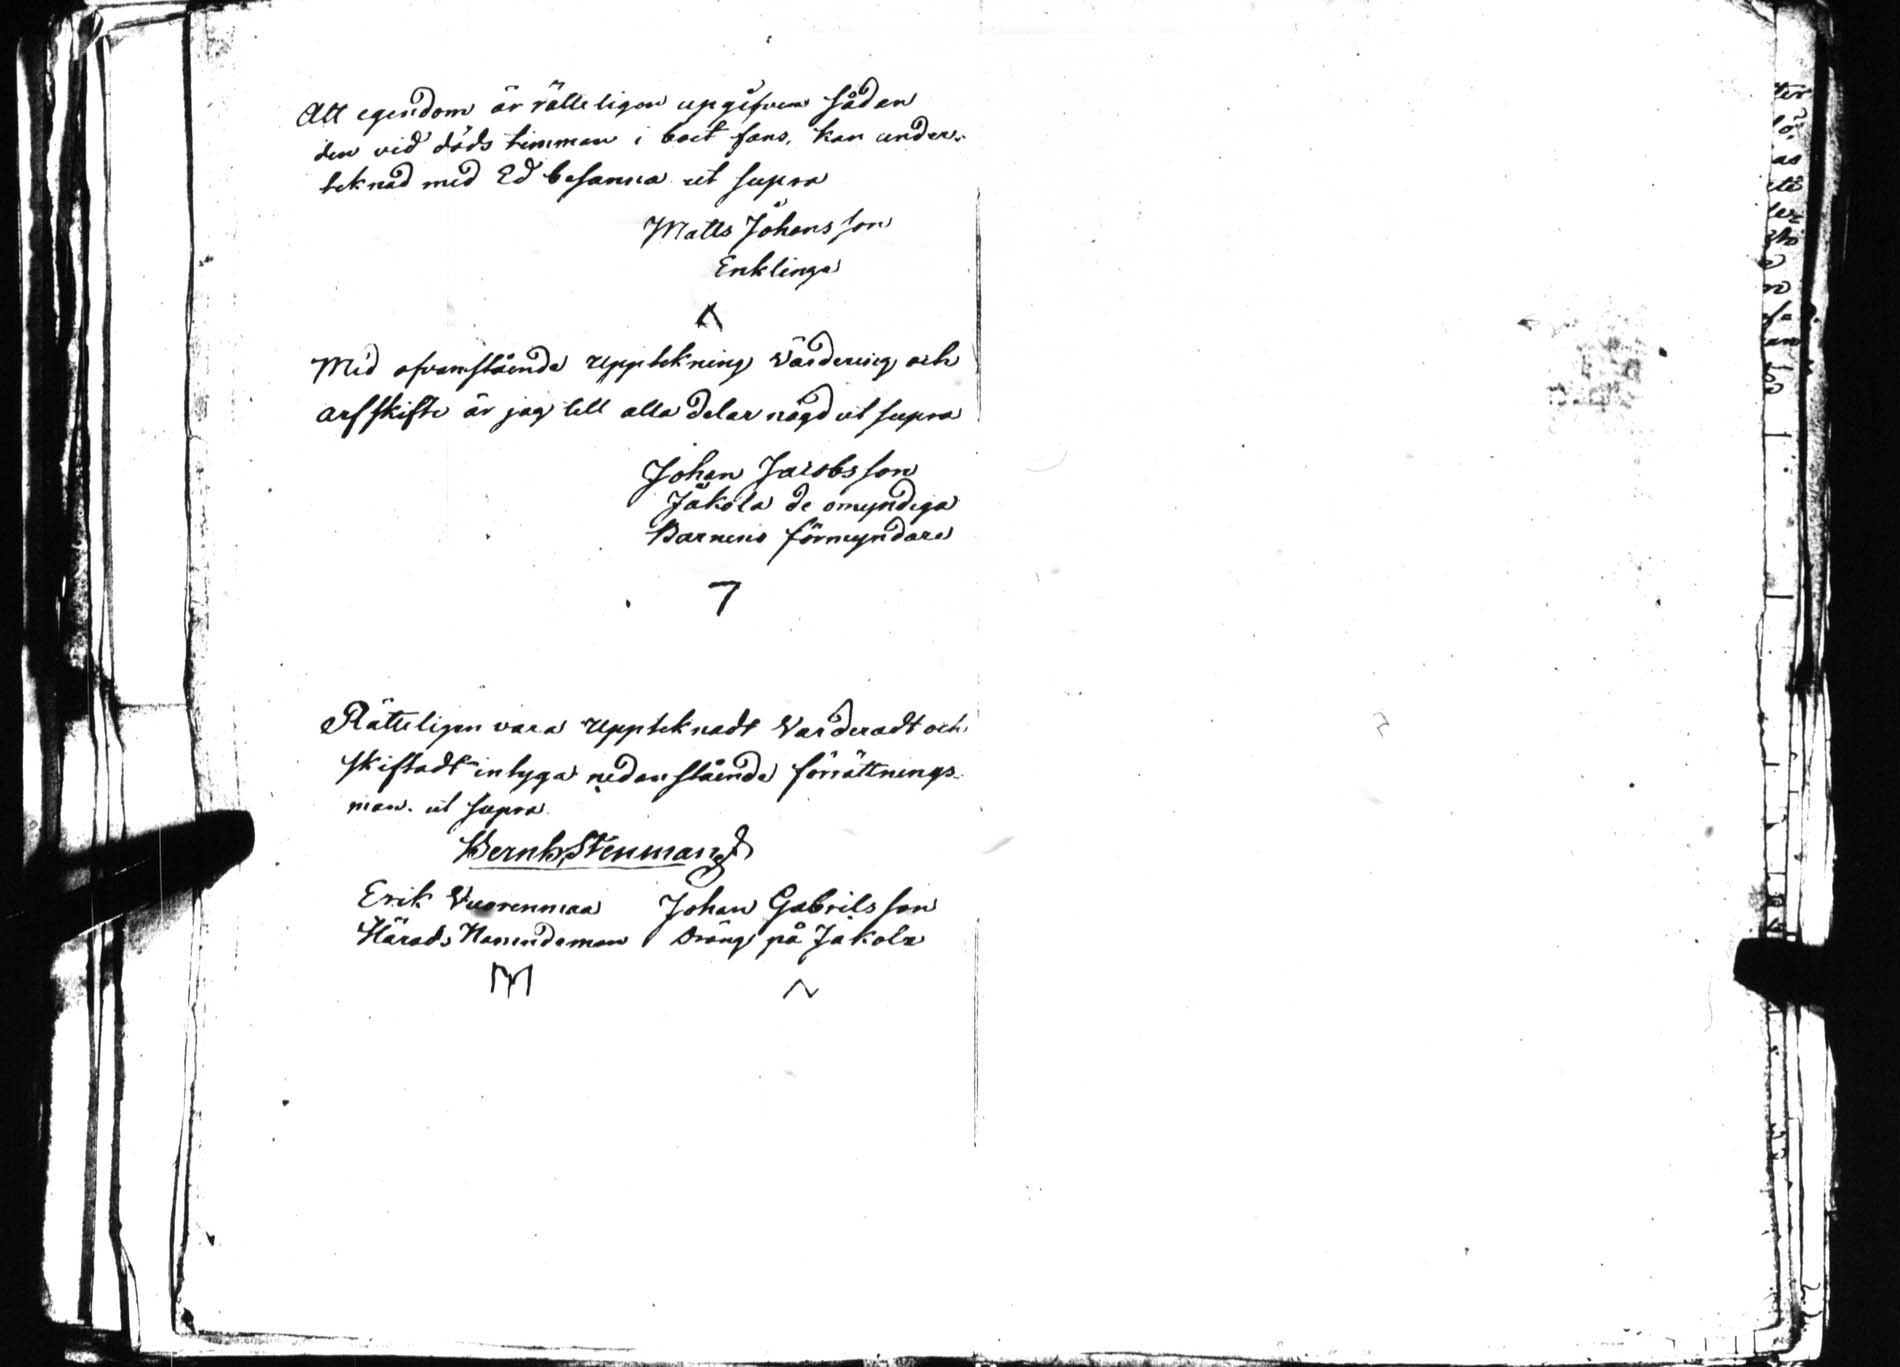 Att egendom är rätteligen upgifven sådan
den vid döds timman i boet fans, kan under-
teknad med Ed besanna ut supra
Matts Johansson
Enklinge
Med ofvanstående Uppteckning Värdering och
arfskifte är jag till alla delar nögd ut supra
Johan Jacobsson
Jäkölä de omyndiga
Barnens förmyndare
Rätteligen vara Uppteknadt Värderadt och
skiftadt intyga nedanstående förrättnings-
män. ut supra
Bernh. Stenman
Erik Vuorenmaa Johan Gabrilsson
Härads Nämndeman Dräng på Jäkölä